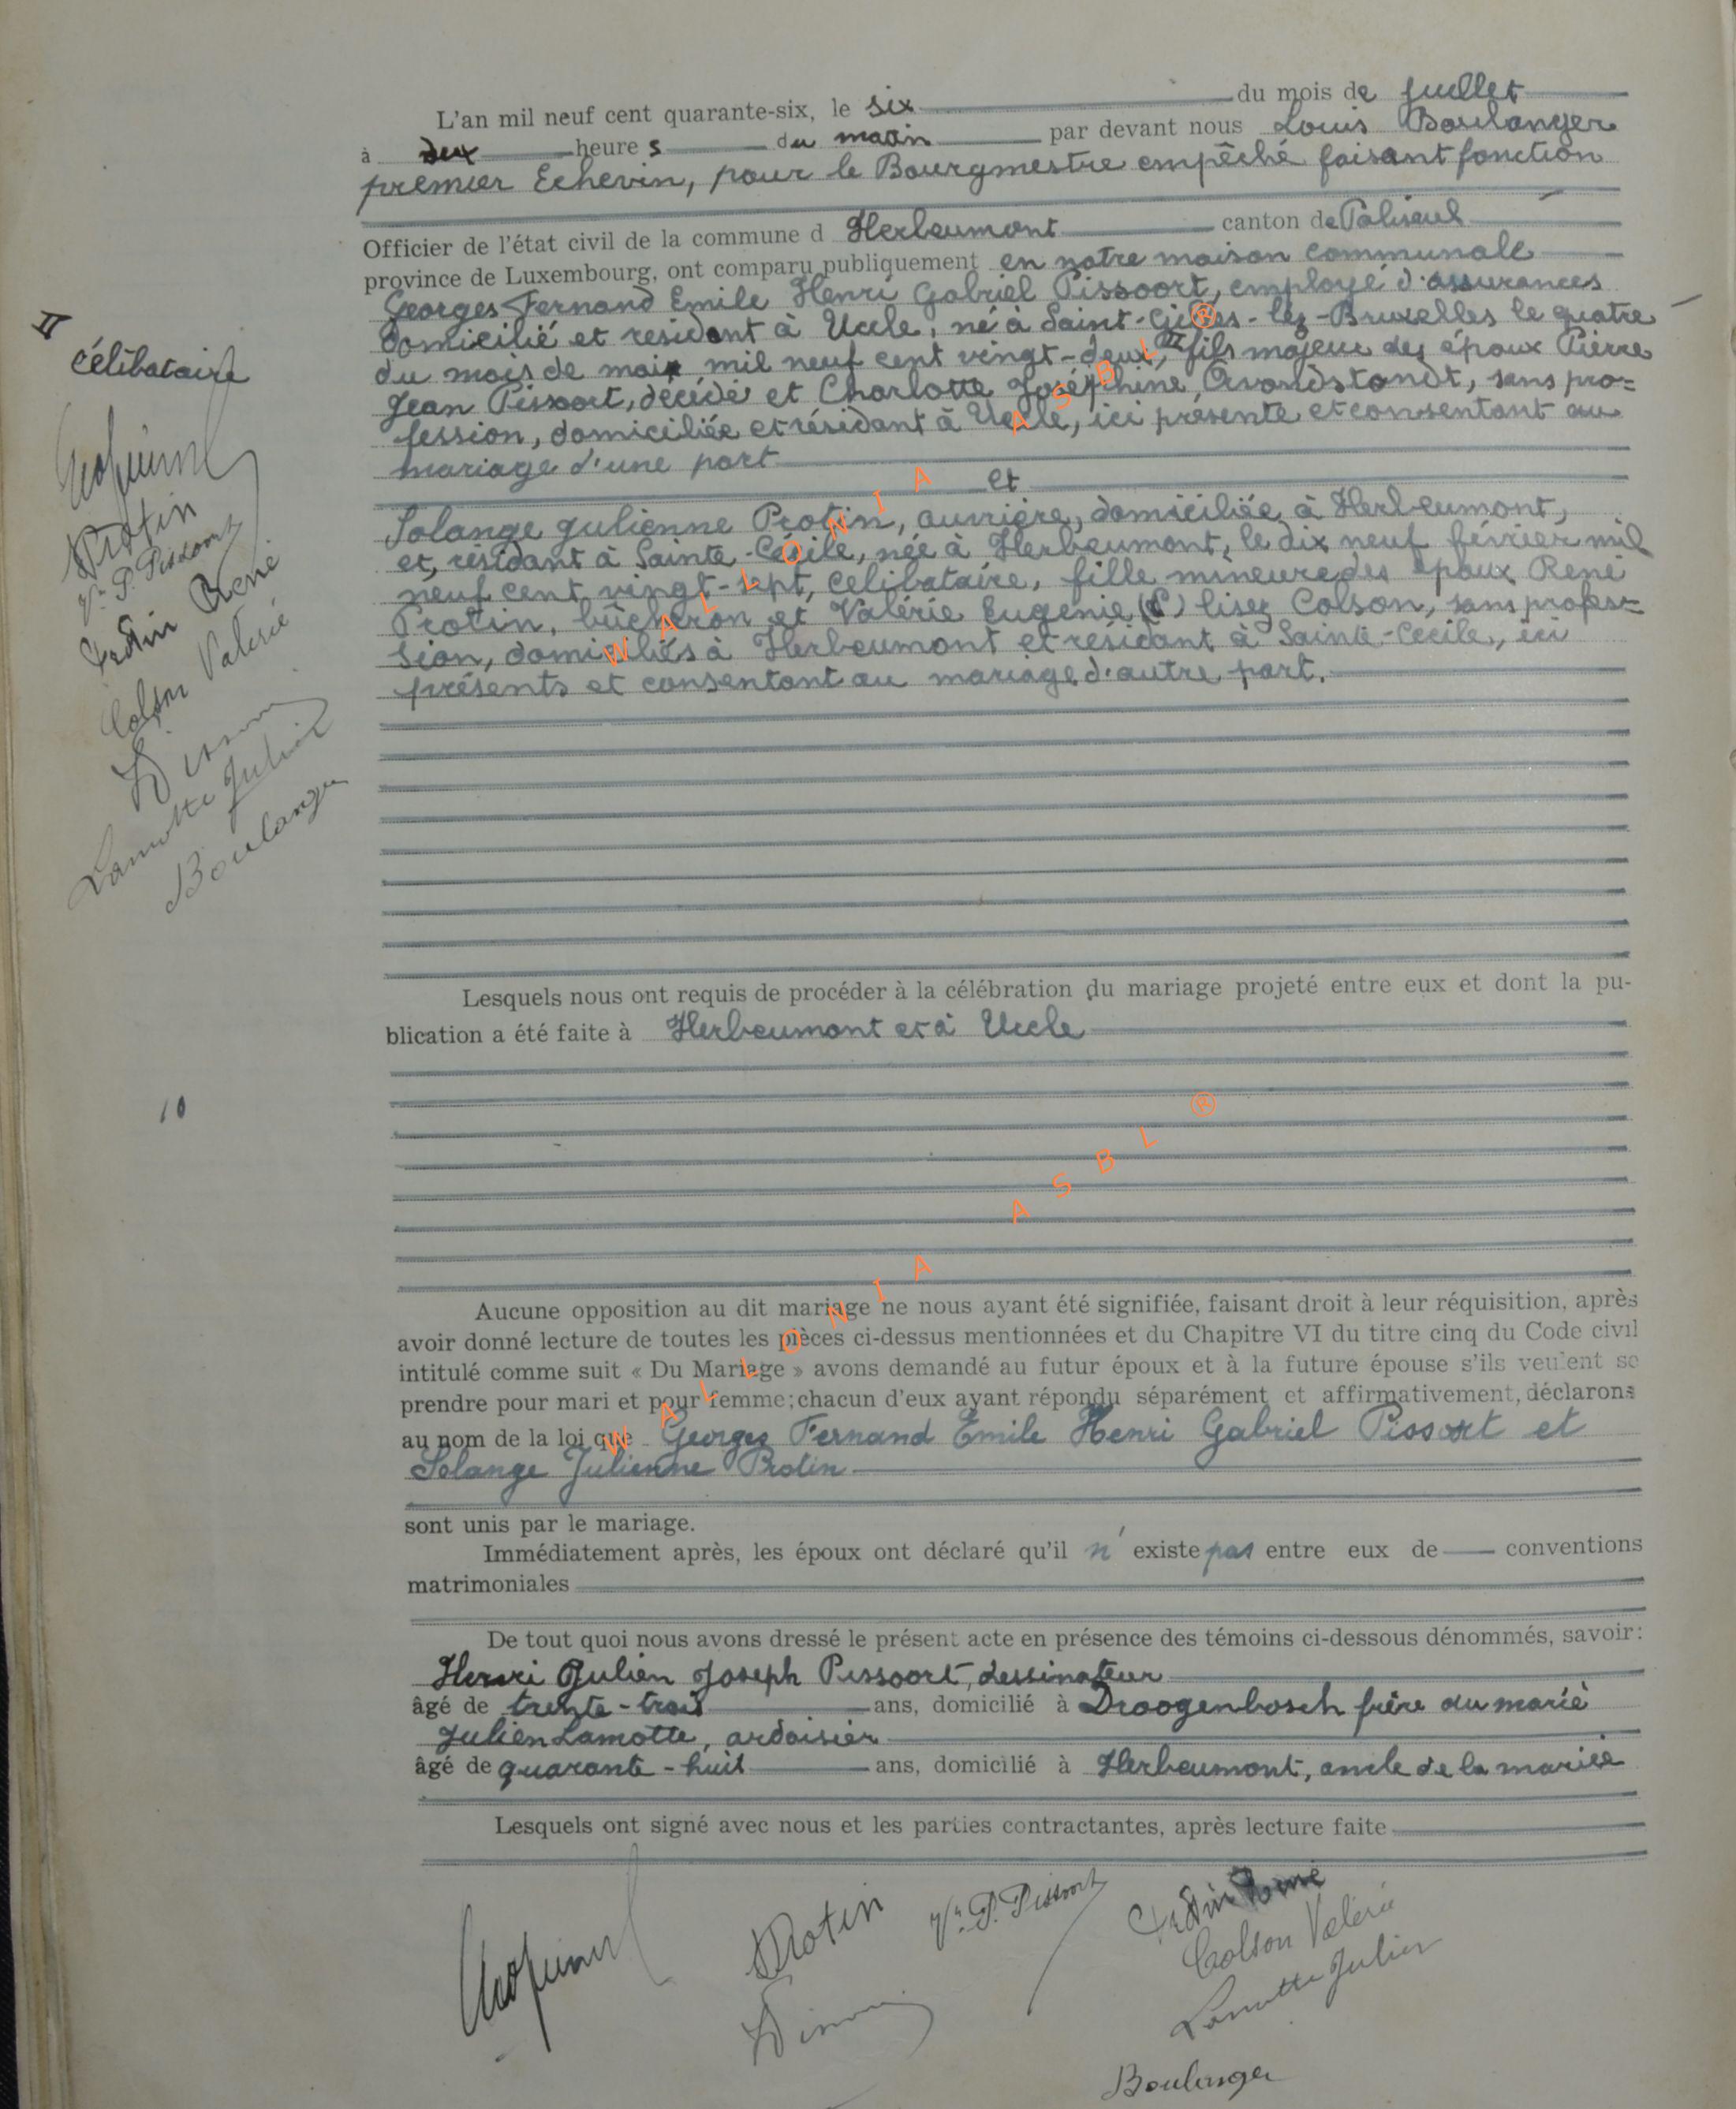 L'an mil neuf cent quarante-six, le six du mois de juillet
à dix heures du matin par devant nous Louis Boulanger
premier Echevin, pour le Bourgmestre empêché faisant fonction
Officier de l'état civil de la commune d Herbeumont canton de Paliseul
province de Luxembourg, ont comparu publiquement en notre maison communale
Georges Fernand Emile Henri Gabriel Pissoort, employé d'assurances
domicilié et résidant à Uccle, né à Saint-Gilles-lez-Bruxelles le quatre
du mois de mai mil neuf cent vingt-deux, II fils majeur des époux Pierre
Jean Pissoort, décédé et Charlotte Joséphine, Avondstondt, sans pro=
fession, domiciliée et résidant à Uccle, ici présente et consentant au
mariage d'une part
et
Solange Julienne Protin, ouvrière, domiciliée à Herbeumont,
et, résidant à Sainte-Cécile, née à Herbeumont, le dix neuf février mil
neuf cent vingt-sept, célibataire, fille mineure des époux René
Protin, bûcheron et Valérie Eugénie (C) lisez Colson, sans profes=
sion, domiciliés à Herbeumont et résidant à Sainte-Cécile, ici
présents et consentant au mariage d'autre part.
II
célibataire
Protin
Ve P. Pissoort
Protin René
Colson Valérie
Lamotte Julien
Boulanger
Lesquels nous ont requis de procéder à la célébration du mariage projeté entre eux et dont la pu-
blication a été faite à Herbeumont et à Uccle
10
Aucune opposition au dit mariage ne nous ayant été signifiée, faisant droit à leur réquisition, après
avoir donné lecture de toutes les pièces ci-dessus mentionnées et du Chapitre VI du titre cinq du Code civil
intitulé comme suit « Du Mariage » avons demandé au futur époux et à la future épouse s'ils veulent se
prendre pour mari et pour femme; chacun d'eux ayant répondu séparément et affirmativement, déclarons
au nom de la loi que Georges Fernand Emile Henri Gabriel Pissoort et
Solange Julienne Protin
sont unis par le mariage.
Immédiatement après, les époux ont déclaré qu'il n'existe pas entre eux de conventions
matrimoniales
De tout quoi nous avons dressé le présent acte en présence des témoins ci-dessous dénommés, savoir:
Henri Julien Joseph Pissoort, dessinateur
âgé de trente-trois ans, domicilié à Droogenbosch frère du marié
Julien Lamotte, ardoisier
âgé de quarante-huit ans, domicilié à Herbeumont, oncle de la mariée
Lesquels ont signé avec nous et les parties contractantes, après lecture faite
Protin
Ve P. Pissoort
Protin René
Colson Valérie
Lamotte Julien
Boulanger
WALLONIA ASBL ®
WALLONIA ASBL ®